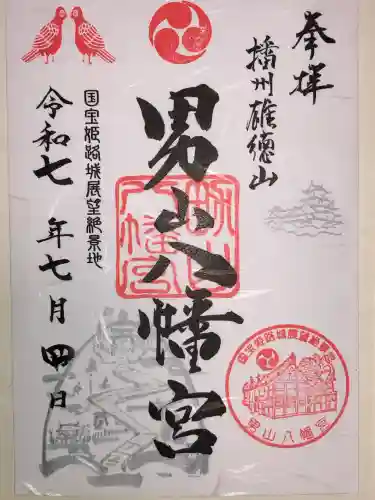 奉拝
播州雄徳山
男山八幡宮
国宝姫路城展望絶景地
令和七年七月四日
男山八幡宮
国宝姫路城展望絶景地
男山八幡宮